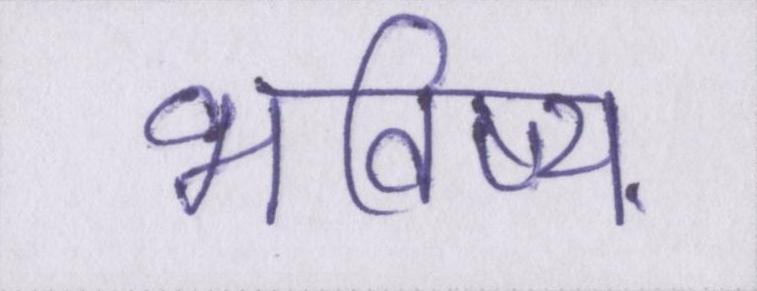 भविष्य.